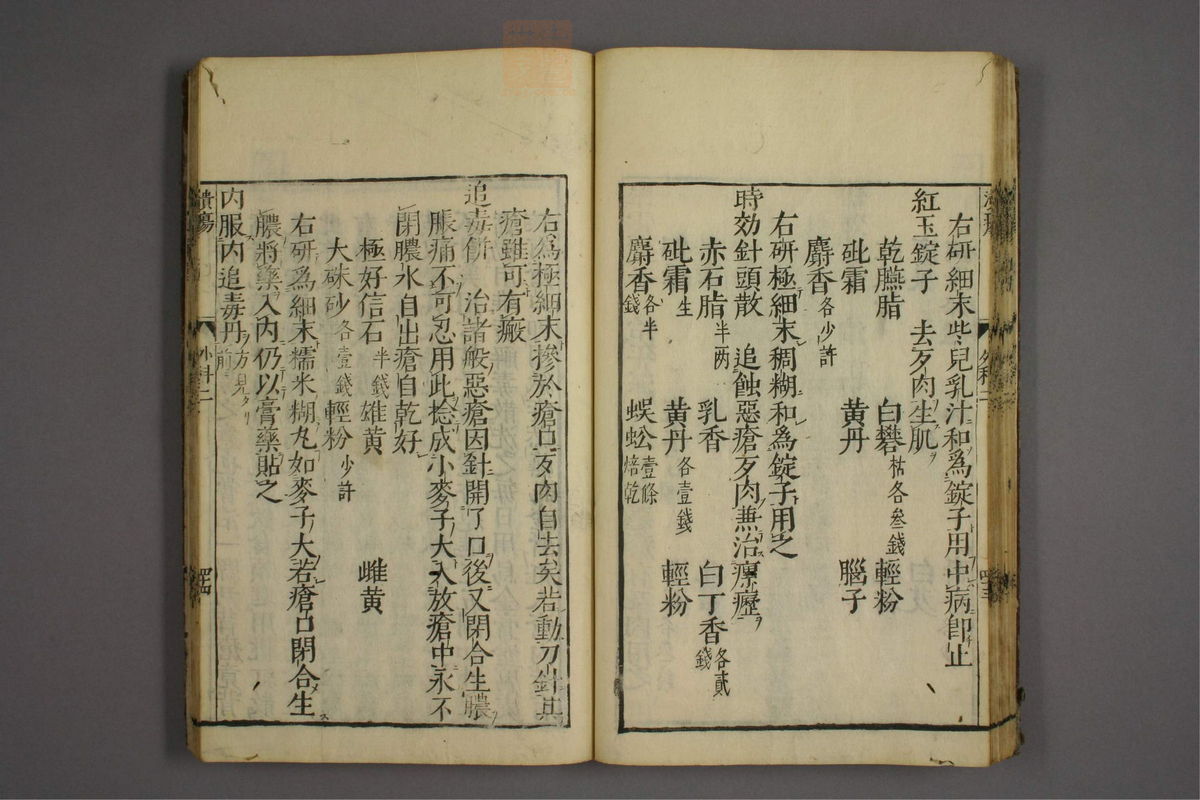 右研細末些兒乳汁和爲錠子用中病即止
紅玉錠子　去歹肉生肌
乾臙脂　白礬枯各叁錢　輕粉
砒霜　黃丹　腦子
麝香各少許
右研極細末稠糊和爲錠子用之
時効針頭散　追蝕惡瘡歹肉兼治瘰癧
赤石脂半両　乳香　白丁香各貳錢
砒霜生　黃丹各壹錢　輕粉
麝香各半錢　蜈蚣壹條焙乾
右爲極細末摻於瘡口歹肉自去矣若動刀針其
瘡雖可有瘢
追毒餅　治諸般惡瘡因針開了口後又閉合生膿
脹痛不可忍用此捻成小麥子大入放瘡中永不
閉膿水自出瘡自乾好
極好信石半錢　雄黃　雌黃
大硃砂各壹錢　輕粉少許
右研爲細末糯米糊丸如麥子大若瘡口閉合生
膿將藥入內仍以膏藥貼之
内服内追毒丹方見前
潰瘍　外科二　四四